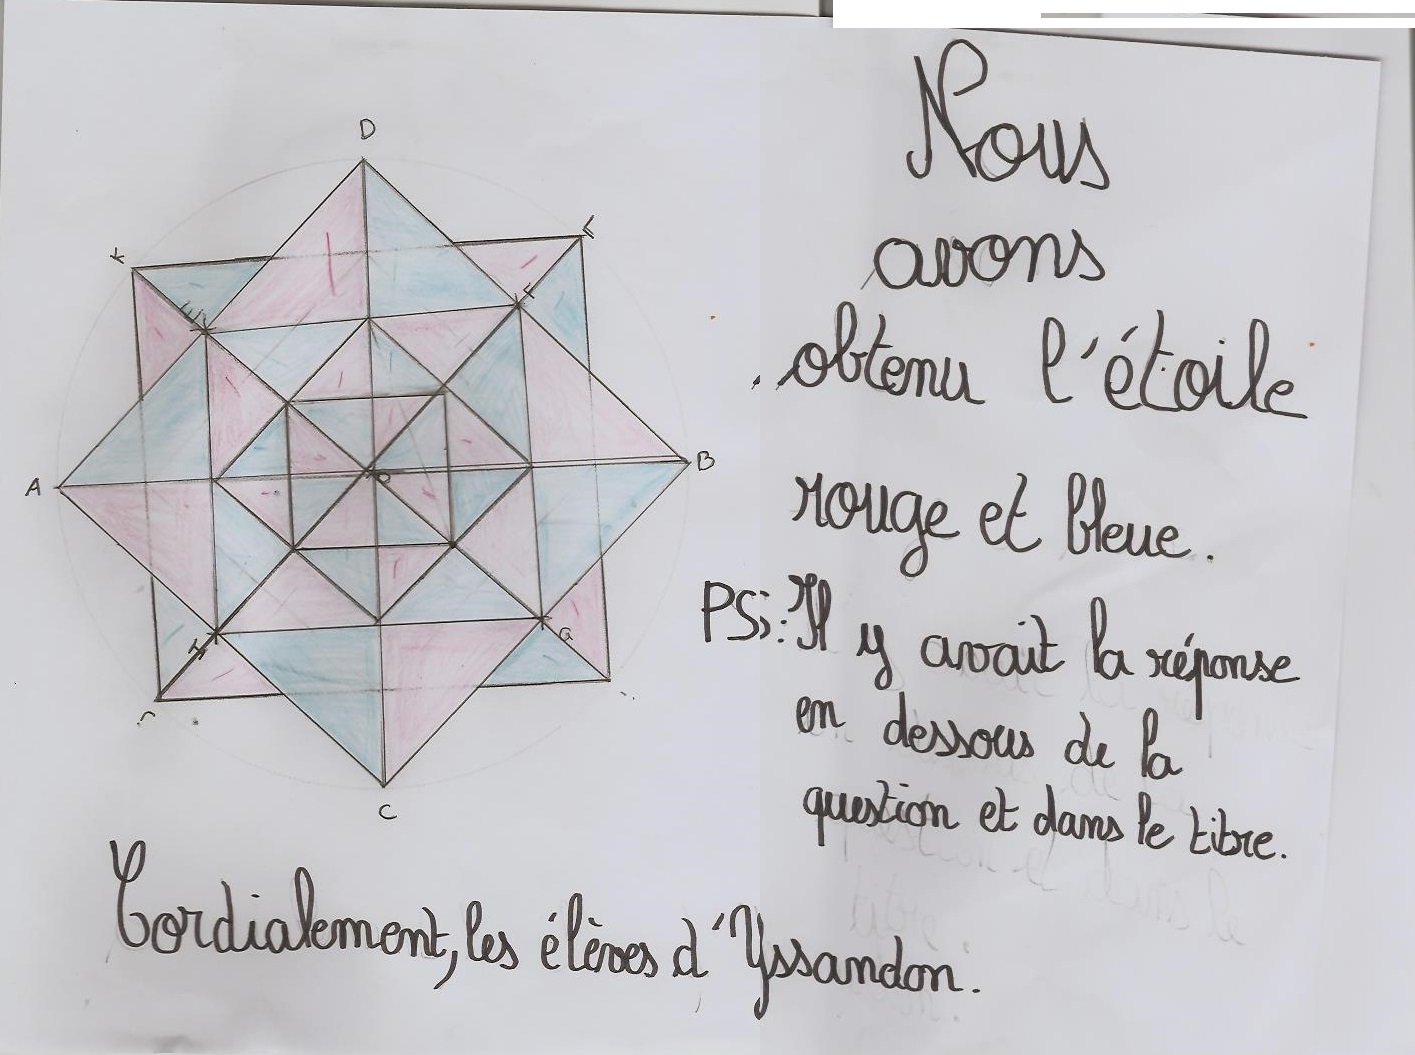 Nous
avons
obtenu l'étoile
rouge et bleue.
PS: Il y avait la réponse
en dessous de la
question et dans le titre.
Cordialement, les élèves d'Yssandon.
D
K
L
E
F
A
B
H
G
C